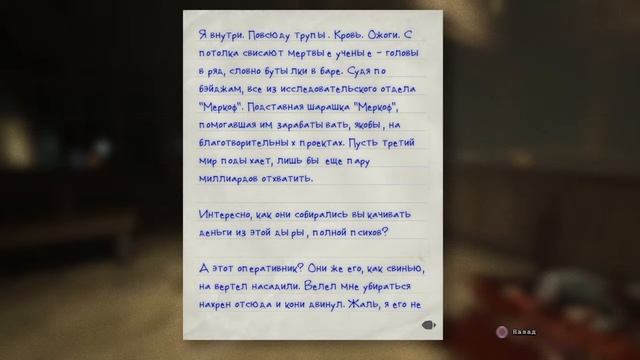 Я внутри. Повсюду трупы. Кровь. Ожоги. С
потолка свисают мертвые ученые - головы
в ряд, словно бутылки в баре. Судя по
бэйджам, все из исследовательского отдела
"Меркоф". Подставная шарашка "Меркоф",
помогавшая им зарабатывать, якобы, на
благотворительных проектах. Пусть третий
мир подыхает, лишь бы еще пару
миллиардов отхватить.
Интересно, как они собирались выкачивать
деньги из этой дыры, полной психов?
А этот оперативник? Они же его, как свинью,
на вертел насадили. Велел мне убираться
нахрен отсюда и кони двинул. Жаль, я его не
Назад